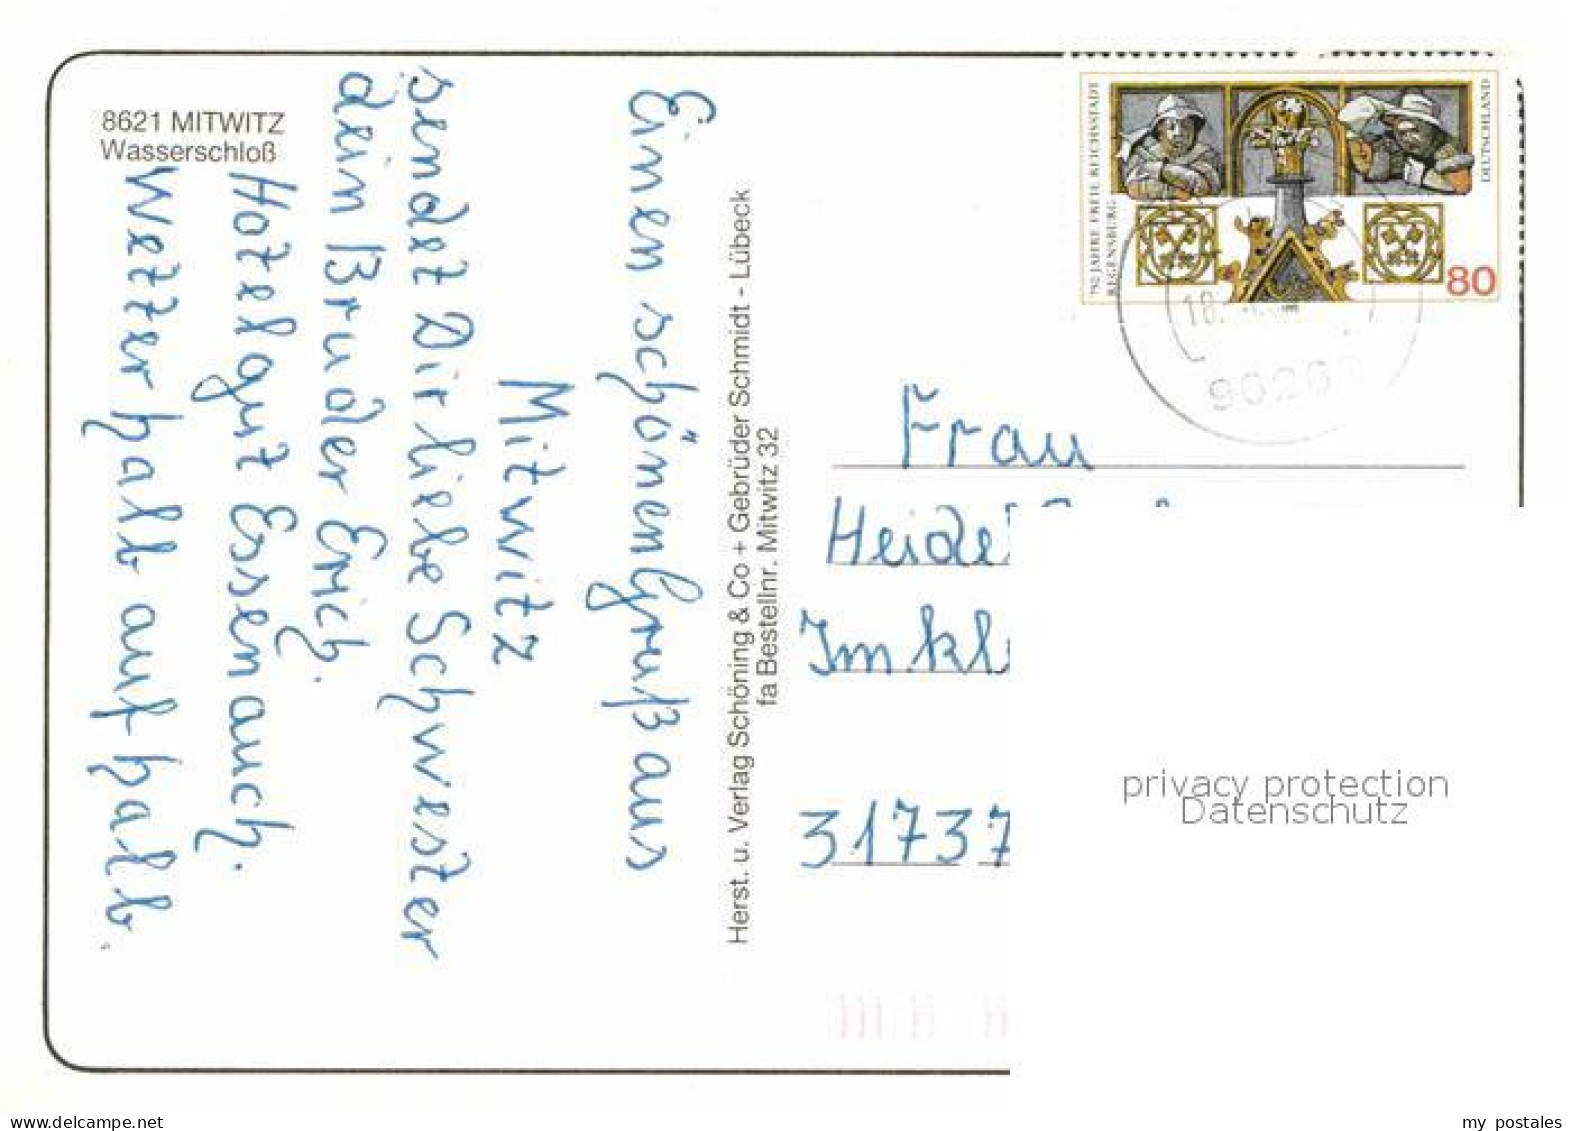 8621 MITWITZ
Wasserschloß
Einen schönen Gruß aus
Mitwitz
sendet Dir liebe Schwester
dein Bruder Erich.
Hotel gut Essen auch.
Wetter halb auf halb.
Herst. u. Verlag Schöning & Co + Gebrüder Schmidt - Lübeck
fa Bestellnr. Mitwitz 32
750 JAHRE FREIE REICHSSTADT
REGENSBURG
DEUTSCHLAND
80
1995
18.
90268
Frau
Im
31737
privacy protection
Datenschutz
my postales